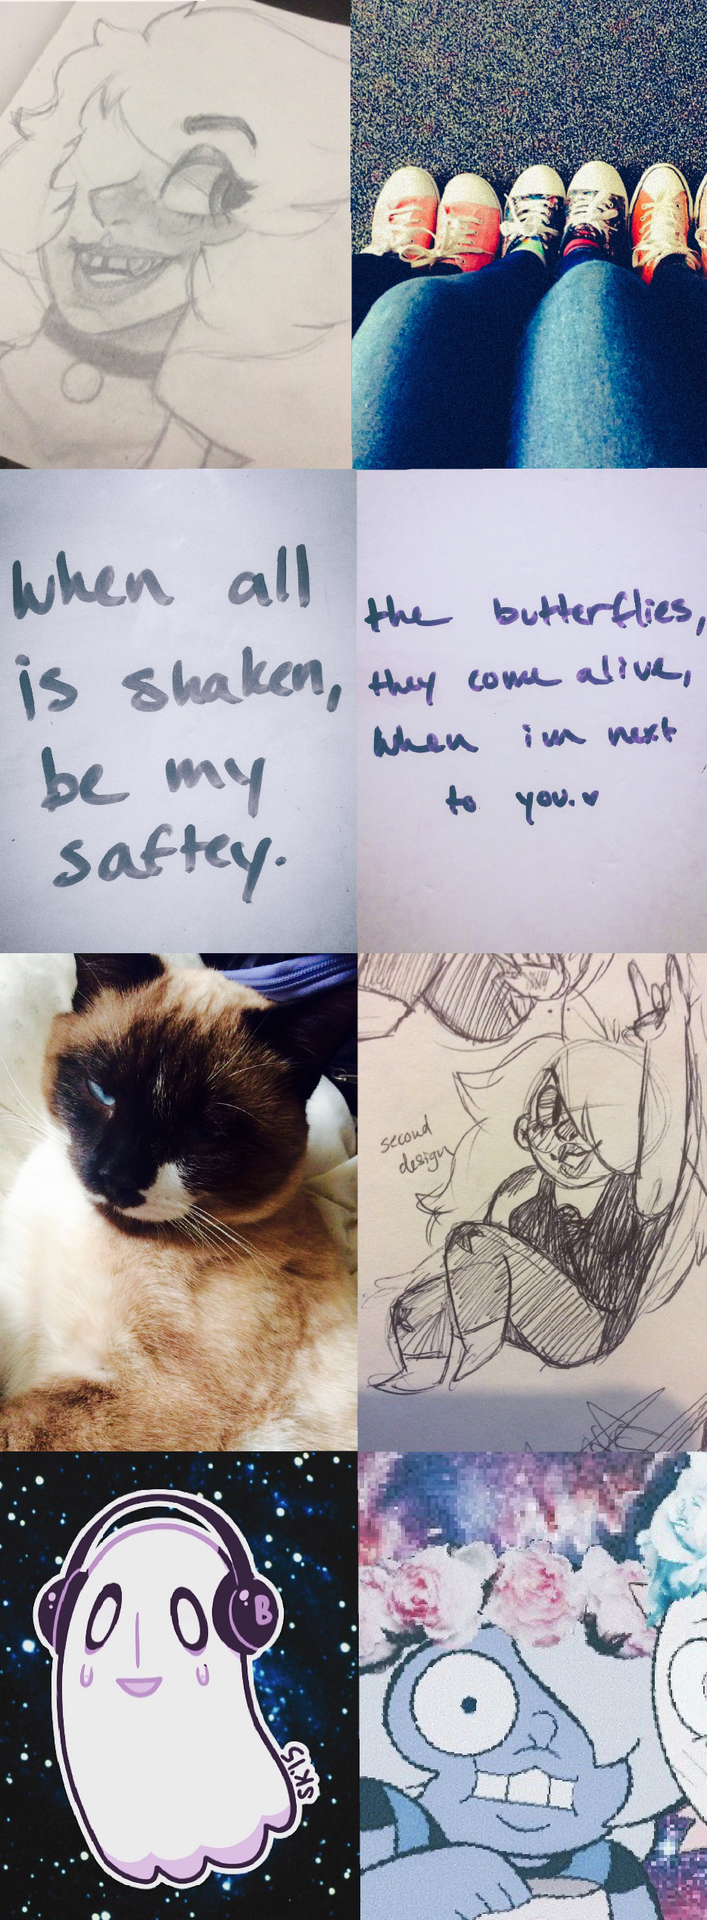 when all
is shaken,
be my
saftey.
the butterflies,
they come alive,
when im next
to you.♥
second
design
B
SK'15